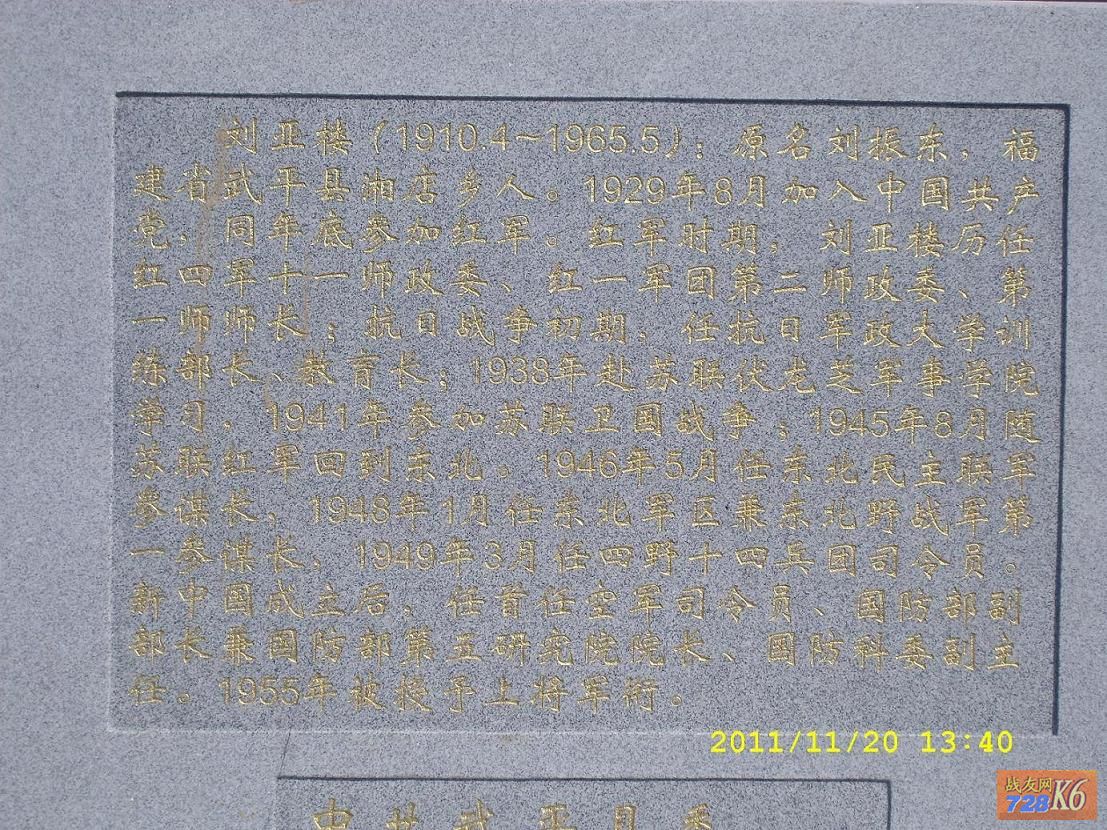 刘亚楼（1910.4～1965.5）：原名刘振东，福
建省武平县湘店乡人。1929年8月加入中国共产
党，同年底参加红军。红军时期，刘亚楼历任
红四军十一师政委、红一军团第二师政委、第
一师师长；抗日战争初期，任抗日军政大学训
练部长、教育长；1938年赴苏联伏龙芝军事学院
学习，1941年参加苏联卫国战争；1945年8月随
苏联红军回到东北。1946年5月任东北民主联军
参谋长，1948年1月任东北军区兼东北野战军第
一参谋长，1949年3月任四野十四兵团司令员。
新中国成立后，任首任空军司令员、国防部副
部长兼国防部第五研究院院长、国防科委副主
任。1955年被授予上将军衔。
2011/11/20 13:40
战友网
728K6
中共武平县委